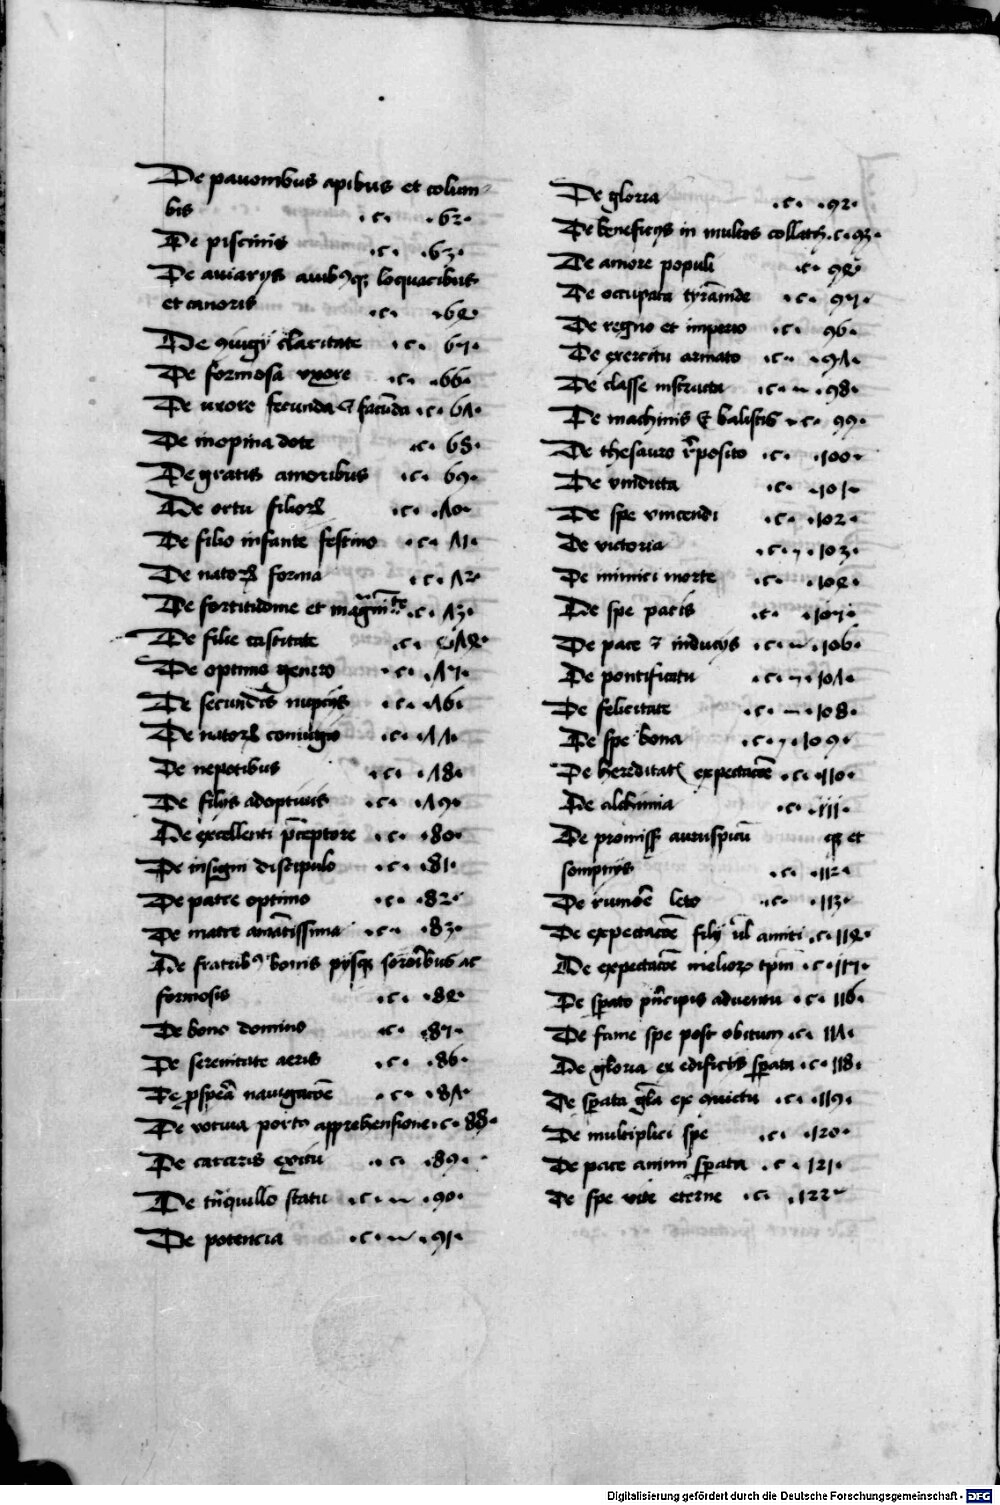 De pavonibus apibus et colum-
bis .c. .62.
De piscinis .c. .63.
De aviarys avibꝰqꝫ loquacibus
et canoris .c. .64.
De ꝯiugij claritate .c. 65.
De formosa uxore .c. .66.
De uxore fecunda & facūda .c. 67.
De inopina dote .c. 68.
De gratis amoribus .c. 69.
De ortu filioꝝ .c. .70.
De filio infante festino .c. 71.
De natoꝝ forma .c. 72.
De fortitudine et .c. 73.
De filie castitate .c. 74.
De optimo genero .c. .75.
De secundis nuptijs .c. .76.
De natoꝝ coniugio .c. .77.
De nepotibus .c. .78.
De filijs adoptivis .c. .79.
De excellenti p̄ceptore .c. .80.
De insigni discipulo .c. .81.
De patre optimo .c. .82.
De matre amātissima .c. .83.
De fratribꝰ bonis pijsqꝫ sororibus ac
formosis .c. .84.
De bono domino .c. .85.
De serenitate aeris .c. .86.
De ꝓspeā navigacōe .c. .87.
De votiva portꝰ apprehensione .c. 88.
De carceris exitu .c. .89.
De tn̄quillo statu .c. .90.
De potencia .c. .91.
De gloria .c. .92.
De beneficijs in multos collatis .c. 93.
De amore populi .c. 94
De occupata tyrānide .c. 95.
De regno et imperio .c. 96.
De exercitu armato .c. .97.
De classe instructa .c. .98.
De machinis & balistis .c. 99.
De thesauro r̄posito .c. .100.
De vindicta .c. .101.
De spe vincendi .c. .102.
De victoria .c. .103.
De inimici morte .c. .104.
De spe pacis .c. .105.
De pace ⁊ inducijs .c. .106.
De pontificatu .c. .107.
De felicitate .c. .108.
De spe bona .c. .109.
De hereditatꝭ expectacōe .c. .110.
De alchimia .c. .111.
De promissꝭ auruspicū qꝫ et
sompnijs .c. .112.
De rumōe leto .c. .113.
De expectacōe filij ul̄ amici .c. 114.
De expectacōe melioꝝ tp̄m .c. 115.
De sꝑato pn̄cipis adventu .c. 116.
De fame spe post obitum .c. 117.
De gloria ex edificijs sꝑata .c. 118.
De sꝑata gl̄a ex ꝯvictu .c. .119.
De multiplici spe .c. .120.
De pace animi sꝑata .c. .121.
De spe vite eterne .c. .122
Digitalisierung gefördert durch die Deutsche Forschungsgemeinschaft - DFG